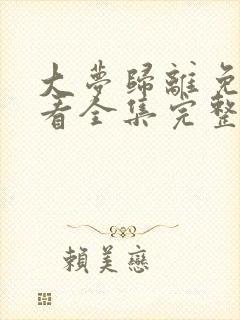 大夢歸離免
看全集完整
賴美戀